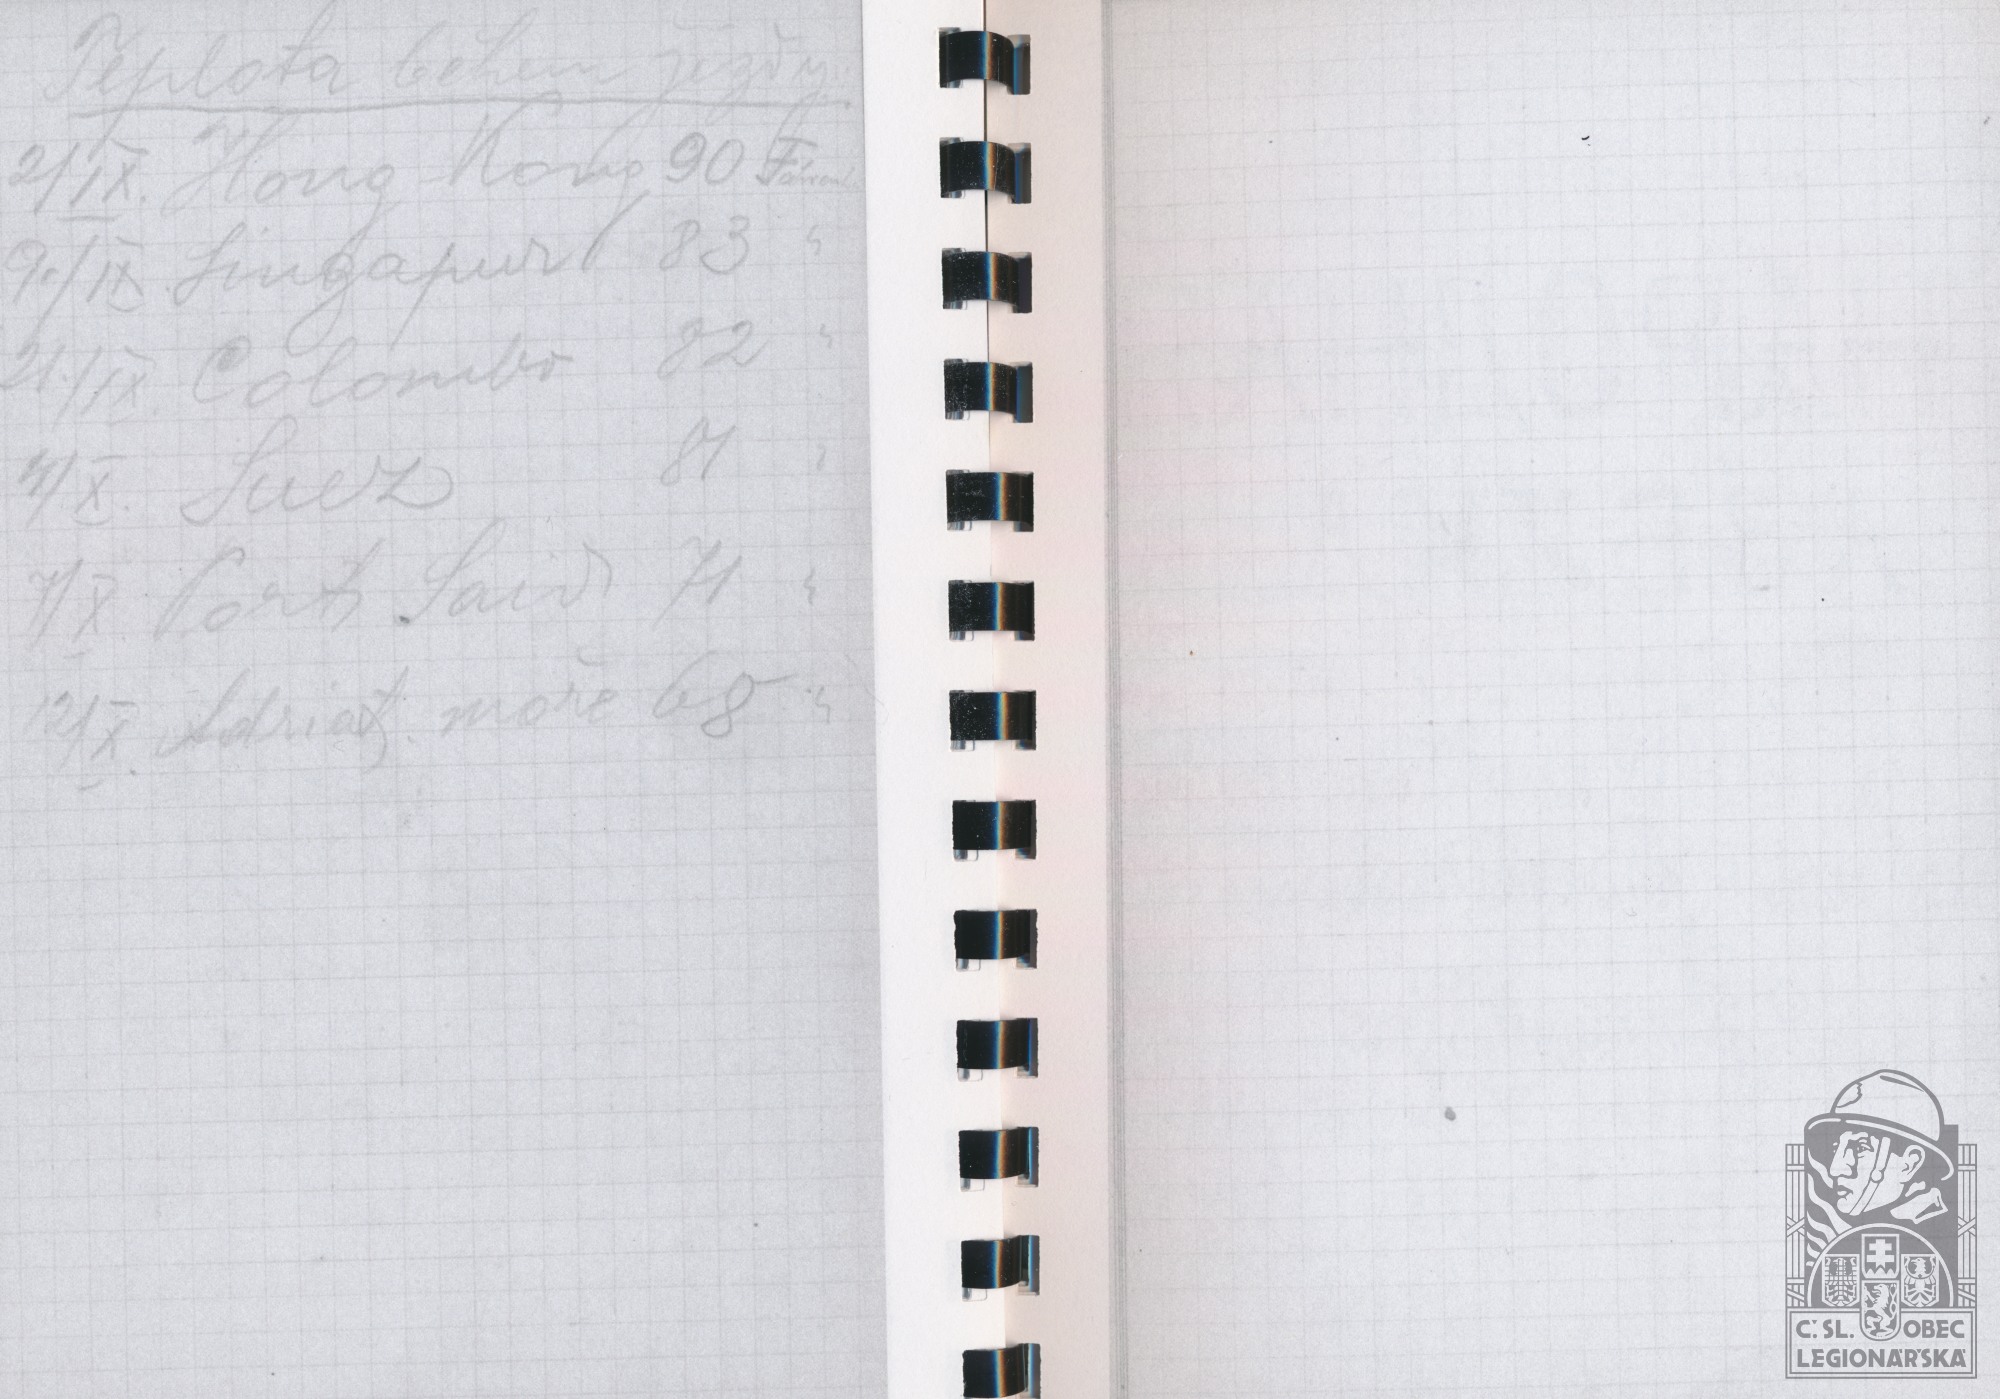 Teplota během jízdy.
2/IX. Hong Kong 90 Farenh.
9./IX. Singapur 83 "
21./IX. Colombo 82 "
4/X. Suez 81 "
7/X Port Said 71 "
12/X. Adriat. moře 68 "
Č. SL. OBEC
LEGIONÁŘSKÁ